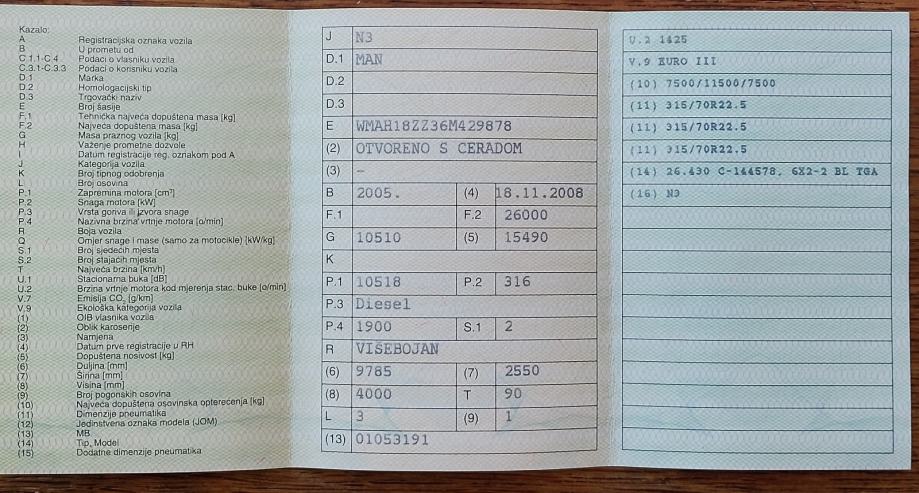 Kazalo:
A Registracijska oznaka vozila
B U prometu od
C.1.1-C.4 Podaci o vlasniku vozila
C.3.1-C.3.3 Podaci o korisniku vozila
D.1 Marka
D.2 Homologacijski tip
D.3 Trgovački naziv
E Broj šasije
F.1 Tehnička najveća dopuštena masa [kg]
F.2 Najveća dopuštena masa [kg]
G Masa praznog vozila [kg]
H Važenje prometne dozvole
I Datum registracije reg. oznakom pod A
J Kategorija vozila
K Broj tipnog odobrenja
L Broj osovina
P.1 Zapremina motora [cm³]
P.2 Snaga motora [kW]
P.3 Vrsta goriva ili izvora snage
P.4 Nazivna brzina vrtnje motora [o/min]
R Boja vozila
Q Omjer snage i mase (samo za motocikle) [kW/kg]
S.1 Broj sjedećih mjesta
S.2 Broj stajaćih mjesta
T Najveća brzina [km/h]
U.1 Stacionarna buka [dB]
U.2 Brzina vrtnje motora kod mjerenja stac. buke [o/min]
V.7 Emisija CO₂ [g/km]
V.9 Ekološka kategorija vozila
(1) OIB vlasnika vozila
(2) Oblik karoserije
(3) Namjena
(4) Datum prve registracije u RH
(5) Dopuštena nosivost [kg]
(6) Duljina [mm]
(7) Širina [mm]
(8) Visina [mm]
(9) Broj pogonskih osovina
(10) Najveća dopuštena osovinska opterećenja [kg]
(11) Dimenzije pneumatika
(12) Jedinstvena oznaka modela (JOM)
(13) MB
(14) Tip, Model
(15) Dodatne dimenzije pneumatika
J N3
D.1 MAN
D.2
D.3
E WMAH18ZZ36M429878
(2) OTVORENO S CERADOM
(3) –
B 2005. (4) 18.11.2008
F.1 F.2 26000
G 10510 (5) 15490
K
P.1 10518 P.2 316
P.3 Diesel
P.4 1900 S.1 2
R VIŠEBOJAN
(6) 9785 (7) 2550
(8) 4000 T 90
L 3 (9) 1
(13) 01053191
U.2 1425
V.9 EURO III
(10) 7500/11500/7500
(11) 315/70R22.5
(11) 315/70R22.5
(11) 315/70R22.5
(14) 26.430 C-144578, 6X2-2 BL TGA
(16) N3